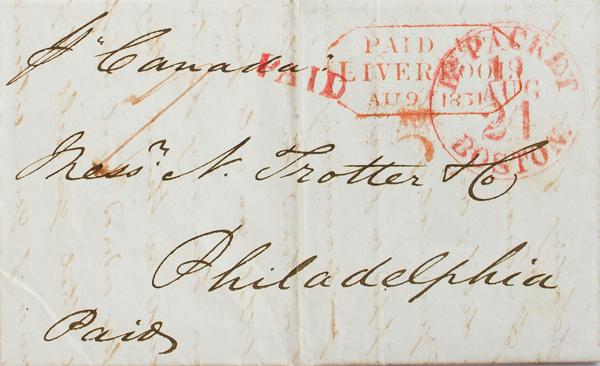 Pr "Canada".
PAID
PAID
LIVERPOOL
AU 9 1851
BR PACKET
19
AUG
21
BOSTON.
5
Messrs. N. Trotter & Co
Philadelphia
Paid